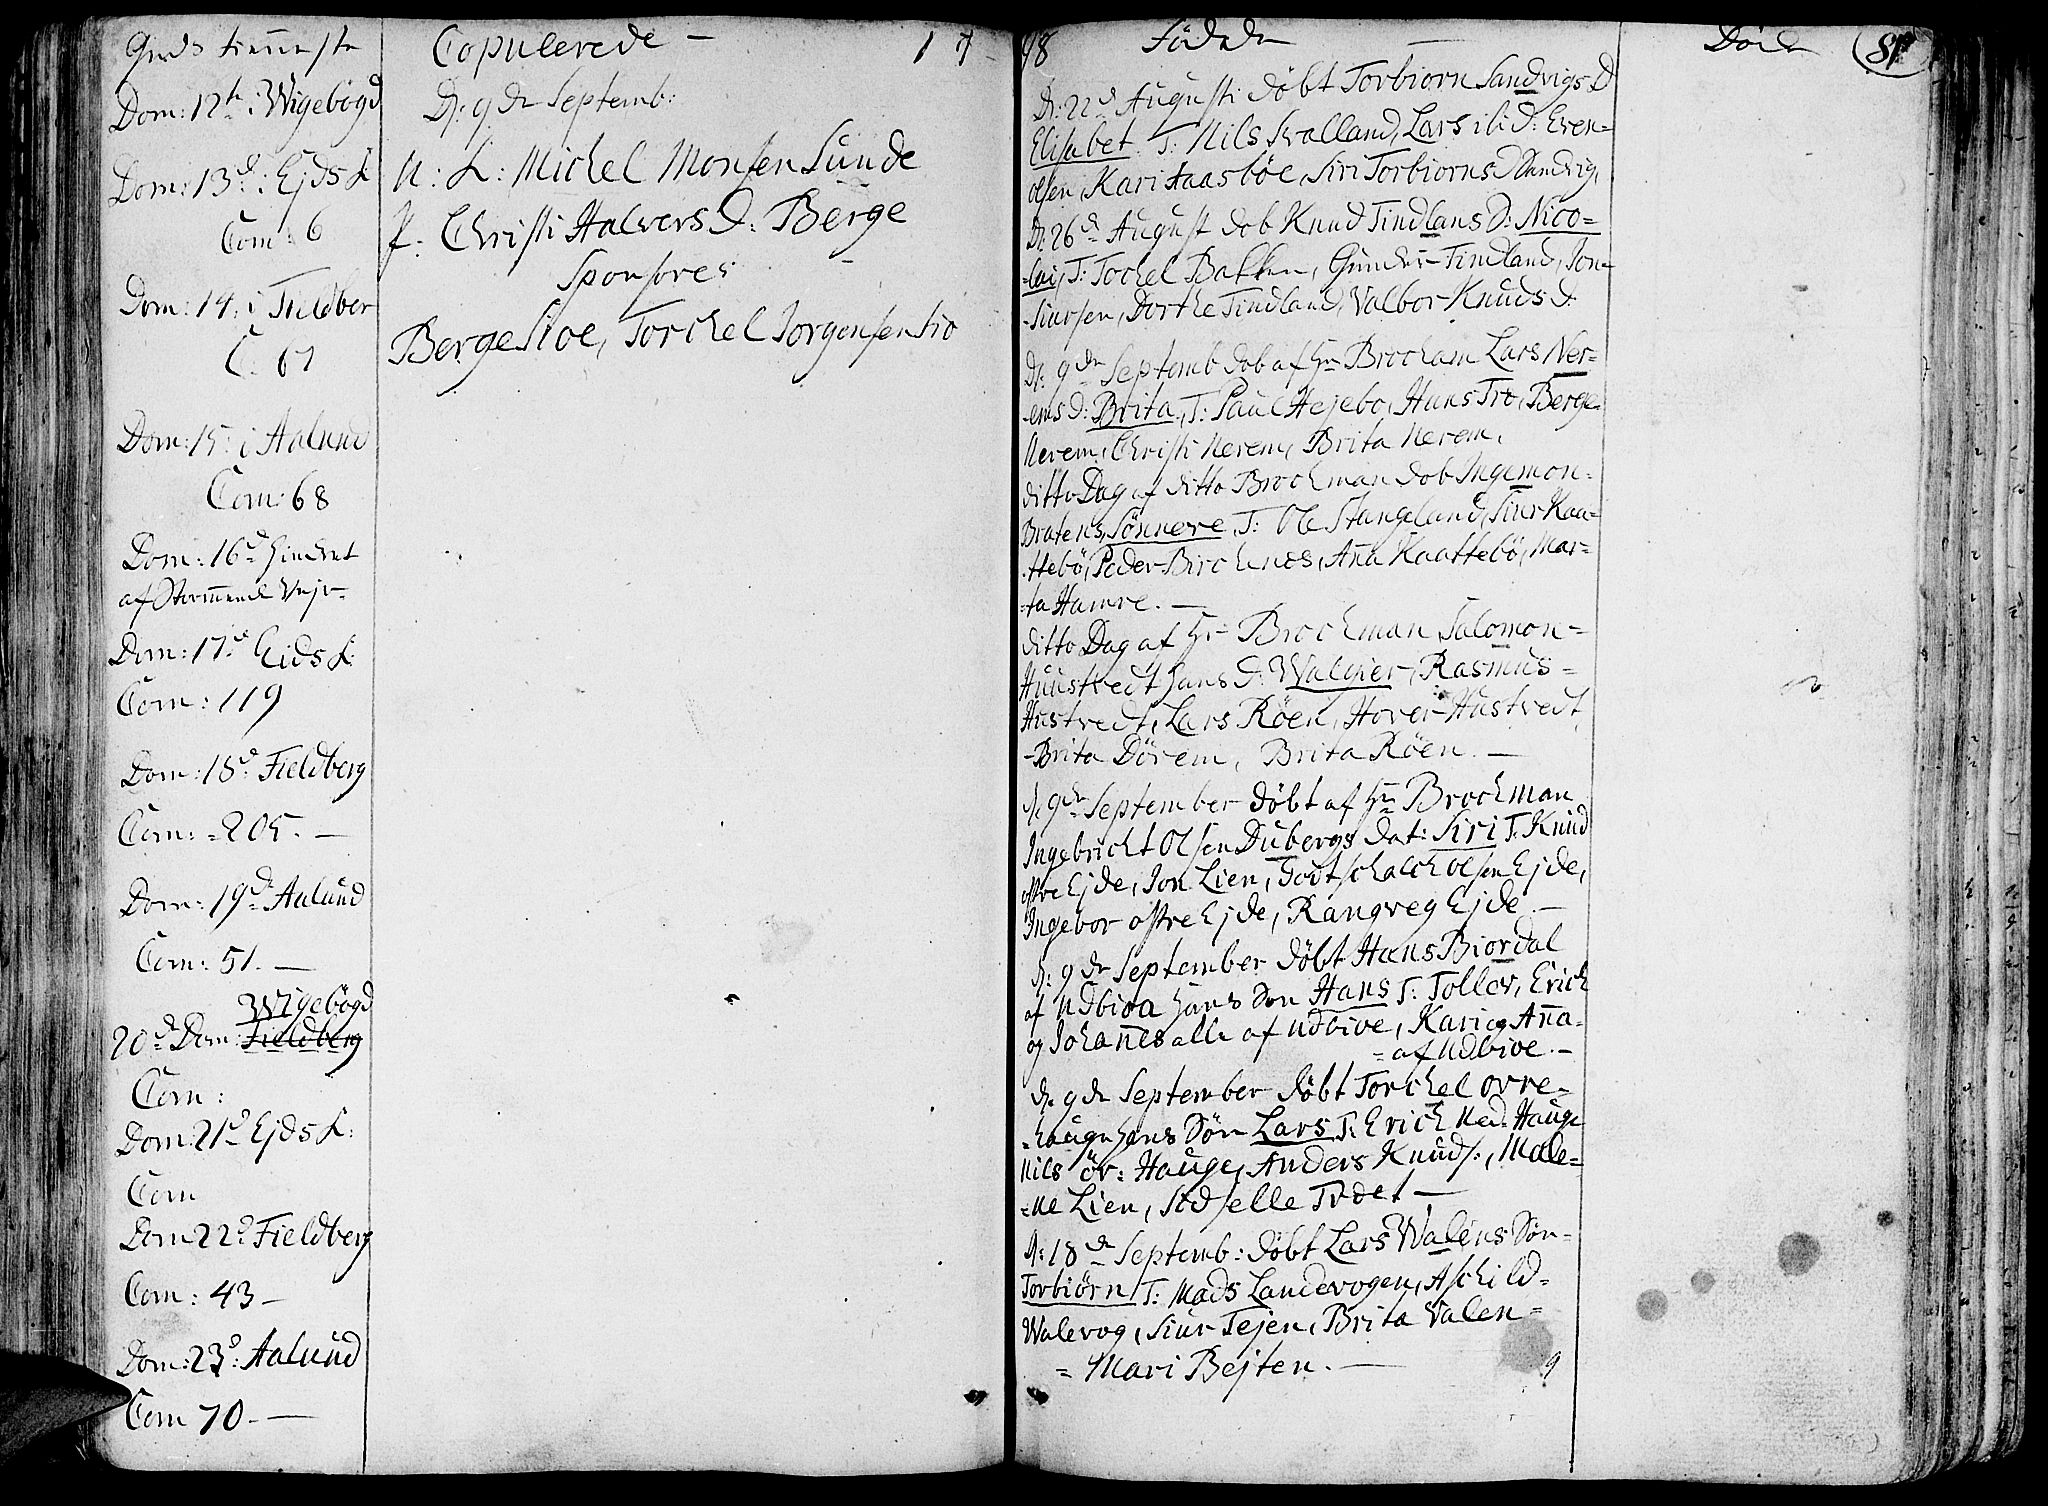 Guds tienneste
Dom: 12te i Wigebögd
Dom: 13de: i Ejds K
Com: 6
Dom: 14. i Fieldber
C. 67
Dom: 15: i Aalund
Com: 68
Dom: 16de hindret
af Stormende Vejr
Dom: 17de Eids K:
Com: 119
Dom: 18de Fieldberg
Com: 205. —
Dom: 19de Aalund
Com: 51. —
Wigebögd
20de Dom: Fieldberg
Com:
Dom: 21de Ejds K:
Com
Dom 22de Fieldberg
Com: 43 —
Dom: 23de: Aalund
Com 70 —
Copulerede — 17
D: 9de Septemb:
U: K: Michel Monsen Sunde
P: Christi Halvers D: Berge
Sponsores
Berge Sioe, Torchel Jorgensen Sio
98 Födde — Döde 81
D: 22de Augusti döbt Torbiorn Sandvigs D
Elisabet. T: Nils Svalland, Lars ibid: Even
olsen, Kari Haasböe, Siri Torbiorns D Sandvig,
D: 26de August dob Knud Tindlans D: Nico=
laij T: Torkel Bakken, Gunder Tindland, Jon
Siursen, Dorthe Tindland, Valbor Knuds D:
D: 9de Septemb dob af Hr Brocham Lars Ner=
ems D: Brita, T: Paul Hejebo, Hans Tro, Berge
Nerem, Christi Nerem, Brita Nerem.
ditto Dag af ditto Brochman dob Ingemon
Bratens, Sönneve, T: Ole Stangeland, Siur Kaa=
ttebö, Peder Birchenes, Anna Kaattebö, Mar=
ta Hamre. —
ditto Dag af Hr Brochman Salomon
Huustvedt hans D: Walgier, Rasmus=
Hustvedt, Lars Röen, Hover Hustvedt,
Brita Dörem, Brita Röen. —
d: 9de September döbt af Hr Brochman
Ingebricht Olsen Dubergs Dat: Siri T: Knud
östre Ejde, Jon Lien, Godtschalch olsen Ejde,
Ingebor östre Ejde, Rangveg Ejde. —
d: 9de September döbt Hans Biordal
af Udbioa hans Son Hans T: Tollev, Erich
og Johannes alle af Udbioe, Kari og Anna
= af Udbioe. —
d: 9de September döbt Torchel ovre=
=haugn hans Sön Lars T: Erich Ned: Hauge
Nils öv: Hauge, Anders Knuds:, Male=
=ne Lien, Sidselle Trdet —
D: 18de Septemb: döbt Lars Walens Sön
Torbiörn T: Mads Landevogen, Aschild=
Walevog, Siur Tejen, Brita Valen=
= Mari Bejten. — 9